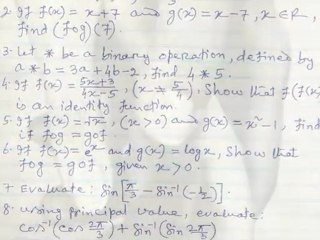 2. If f(x) = x+7 and g(x) = x-7, x∈R,
find (fog)(7).
3. Let * be a binary operation, defined by
a * b = 3a + 4b - 2, find 4 * 5.
4. If f(x) = (5x+3)/(4x-5), (x ≠ 5/4), Show that f(f(x)
is an identity function.
5. If f(x) = √x, (x > 0) and g(x) = x² - 1, find
if fog = gof.
6. If f(x) = eˣ and g(x) = log x, Show that
fog = gof, given x > 0.
7. Evaluate: Sin[π/3 - Sin⁻¹(-1/2)].
8. Using principal value, evaluate:
cos⁻¹(cos 2π/3) + Sin⁻¹(Sin 2π/5)